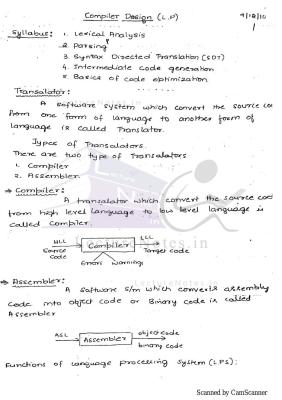 Compiler Design (L.P)
9/12/10
1
Syllabus: 1. Lexical Analysis
2. Parsing
3. Syntax Directed Translation (SDT)
4. Intermediate code generation
5. Basics of code optimization
Translator:
A software system which convert the source co
from one form of language to another form of
language is called Translator.
Types of Translators.
There are two type of Translators
1. Compiler
2. Assembler.
→ Compiler:
A translator which convert the source cod
from high level Language to low level language is
called compiler.
HLL Compiler LLL
Source Code Target code
Errors Warnings
→ Assembler:
A software s/m which converts assembly
Code into object code or Binary code is called
Assembler
ASL Assembler object code
binary code
Functions of Language processing System (LPS):
Scanned by CamScanner